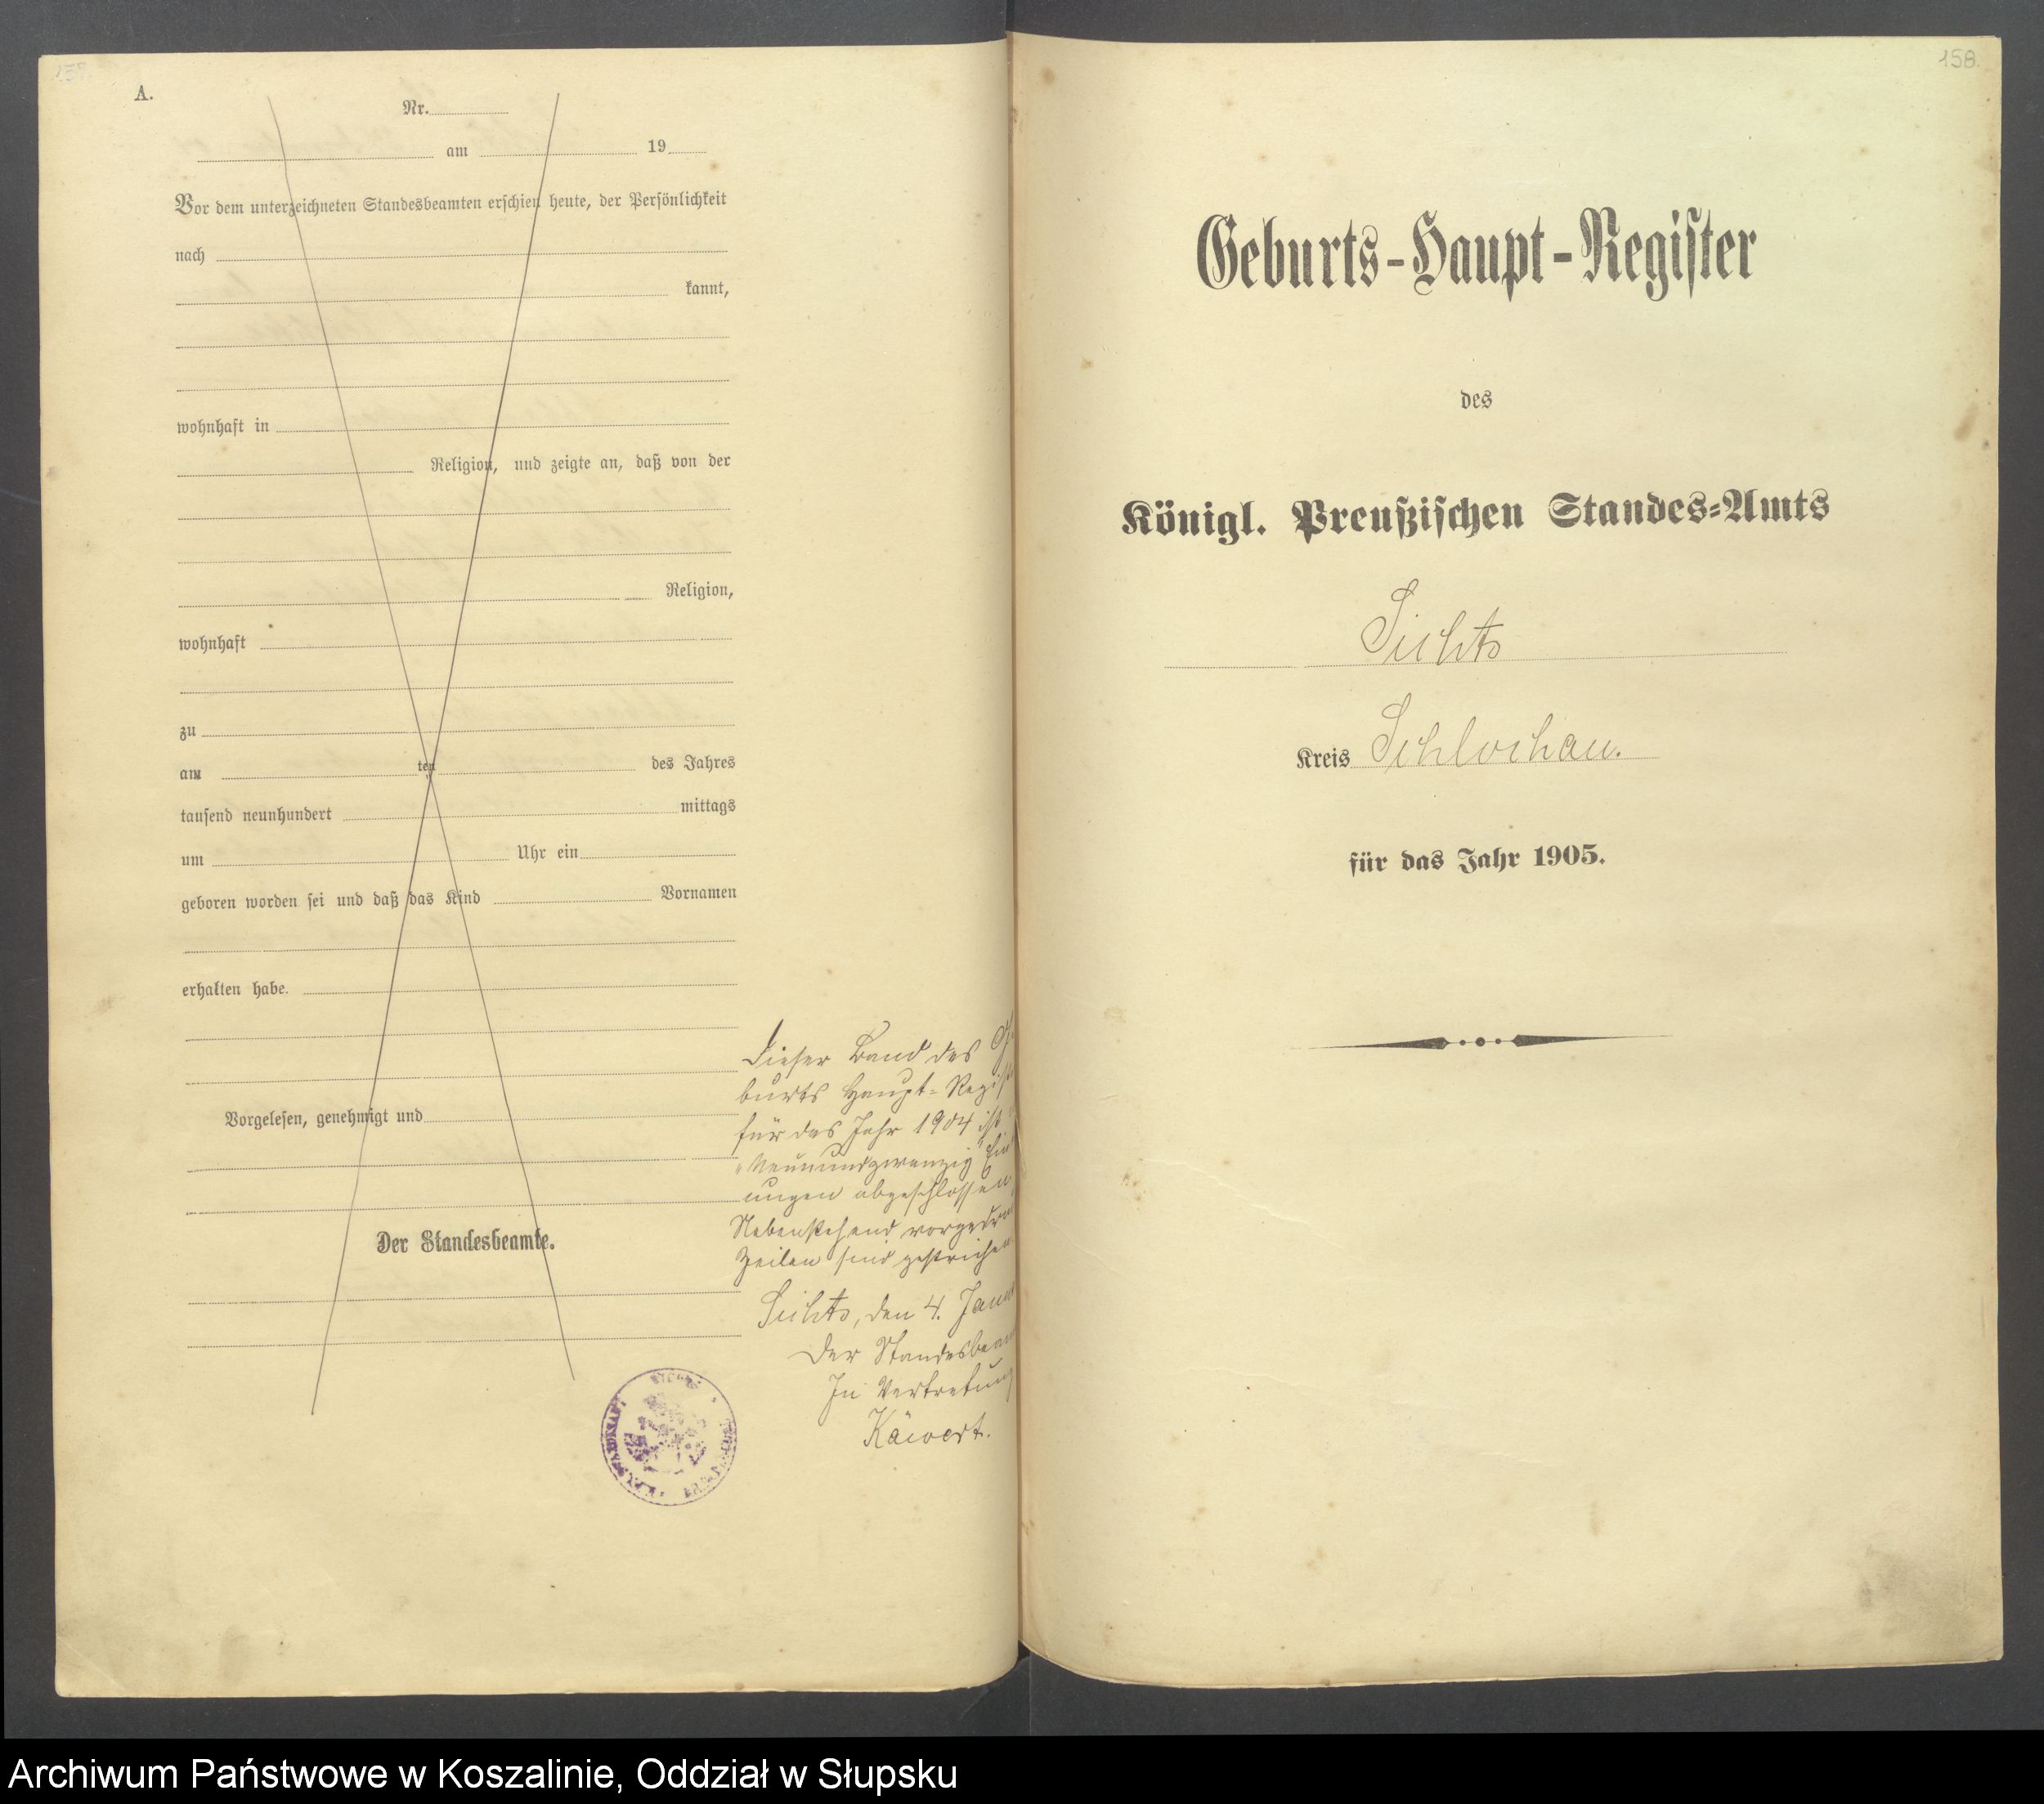 A.
Nr.
am 19
Vor dem unterzeichneten Standesbeamten erschien heute, der Persönlichkeit
nach
kannt,
wohnhaft in
Religion, und zeigte an, daß von der
Religion,
wohnhaft
zu
am ten des Jahres
tausend neunhundert mittags
um Uhr ein
geboren worden sei und daß das Kind Vornamen
erhalten habe.
Vorgelesen, genehmigt und
Der Standesbeamte.
Dieser Band des Ge
burts Haupt-Regist
für das Jahr 1904 ist
"Neunundzwanzig" Ein
ungen abgeschlossen
Nebenstehend vorgedru
Zeilen sind gestrichen
Sichts, den 4. Janu
Der Standesbeam
In Vertretung
158.
Geburts-Haupt-Register
des
Königl. Preußischen Standes-Amts
Sichts
Kreis Schlochau.
für das Jahr 1905.
Archiwum Państwowe w Koszalinie, Oddział w Słupsku